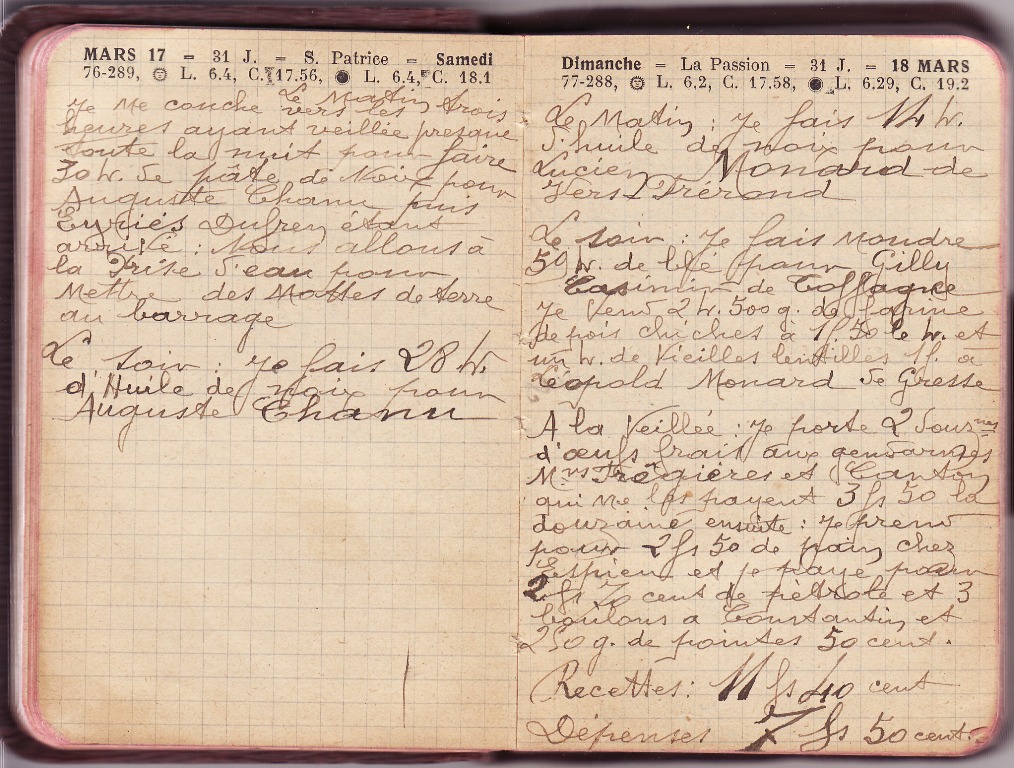 MARS 17 = 31 J. = S. Patrice = Samedi
76-289, L. 6.4, C. 17.56, L. 6.4, C. 18.1
Le Matin
Je me couche vers les trois
heures ayant veillée presque
toute la nuit pour faire
30 k. de pâte de Noix pour
Auguste Chanu puis
Eyriès Dufrey étant
arrivé : Nous allons à
la Prise d'eau pour
Mettre des Mottes de terre
au barrage
Le soir : Je fais 28 k.
d'Huile de noix pour
Auguste Chanu
Dimanche = La Passion = 31 J. = 18 MARS
77-288, L. 6.2, C. 17.58, L. 6.29, C. 19.2
Le Matin : Je fais 14 k.
d'huile de noix pour
Lucien Monard de
Vers
Le soir : Je fais Moudre
50 k. de blé pour Gilly
Casimir de
Je Vend 2 k. 500 g. de farine
de pois chiches à 1f 50 le k. et
un k. de Vieilles lentilles 1f. a
Léopold Monard de Gresse
A la Veillée : Je porte 2 Douz nes
d'œufs frais aux gendarmes
M rs et Canton
qui me les payent 3 fs 50 la
douzaine ensuite : Je prend
pour 2 fs 50 de pain chez
Espieu et je paye pour
2 fs 70 cent de pètrole et 3
boulons a Constantin et
250 g. de pointes 50 cent.
Recettes : 11 fs 40 cent
Dépenses 7 fs 50 cent.